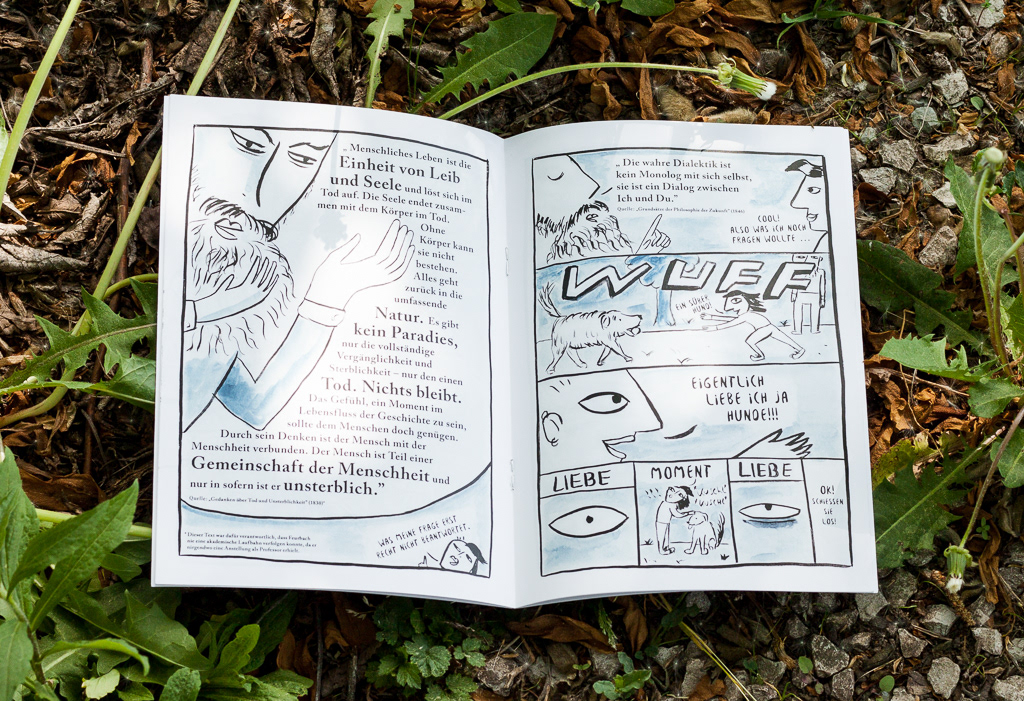 „ Menschliches Leben ist die
Einheit von Leib
und Seele und löst sich im
Tod auf. Die Seele endet zusam-
men mit dem Körper im Tod.
Ohne
Körper kann
sie nicht
bestehen.
Alles geht
zurück in die
umfassende
Natur. Es gibt
kein Paradies,
nur die vollständige
Vergänglichkeit und
Sterblichkeit – nur den einen
Tod. Nichts bleibt.
Das Gefühl, ein Moment im
Lebensfluss der Geschichte zu sein,
sollte dem Menschen doch genügen.
Durch sein Denken ist der Mensch mit der
Menschheit verbunden. Der Mensch ist Teil einer
Gemeinschaft der Menschheit und
nur in sofern ist er unsterblich.”
Quelle: „Gedanken über Tod und Unsterblichkeit” (1830)*
* Dieser Text war dafür verantwortlich, dass Feuerbach
nie eine akademische Laufbahn verfolgen konnte, da er
nirgendwo eine Anstellung als Professor erhielt.
WAS MEINE FRAGE ERST
RECHT NICHT BEANTWORTET...
„ Die wahre Dialektik ist
kein Monolog mit sich selbst,
sie ist ein Dialog zwischen
Ich und Du.”
Quelle: „Grundsätze der Philosophie der Zukunft” (1846)
COOL!
ALSO WAS ICH NOCH
FRAGEN WOLLTE ...
WUFF
EIN SÜßER
HUND!
EIGENTLICH
LIEBE ICH JA
HUNDE!!!
LIEBE
MOMENT
LIEBE
OK!
SCHIESSEN
SIE
LOS!